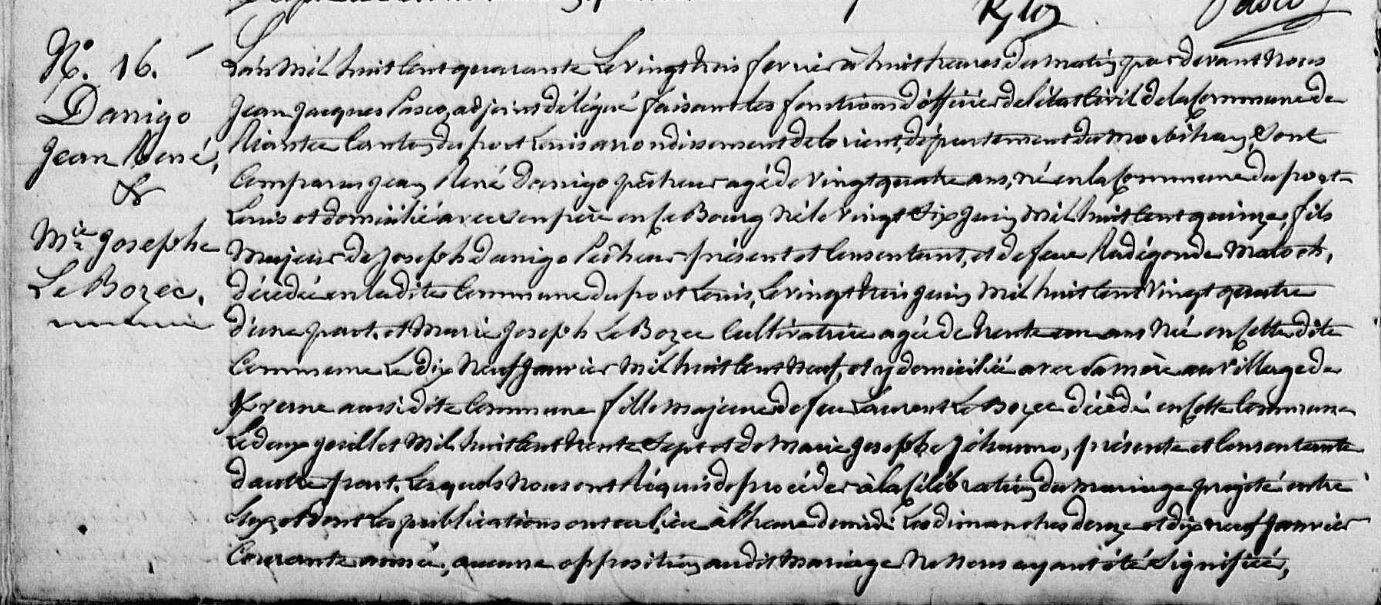 N.º 16.
Danigo
Jean René,
&
M.ie Josephe
Le Bozec.
L'an Mil huit Cent quarante Le vingt trois fevrier à huit heures du matin, par devant Nous
Jean Jacques Pasco, adjoint délégué faisant les fonctions d'officier de l'état Civil de la Commune de
Riantec Canton du port Louis arrondissement de Lorient, département du Morbihan, Sont
Comparus Jean René Danigo pêcheur agé de Vingt quatre ans, né en la Commune du port
Louis et domicilié avec Son père en ce Bourg Né le vingt Six Juin Mil huit Cent quinze, fils
Majeur de Joseph Danigo Pêcheur présent et Consentant, et de feue Radégonde
décédée en ladite Commune du port Louis, Le vingt trois Juin Mil huit Cent Vingt quatre
d'une part. et Marie Joseph Le Bozec Cultivatrice agée de trente un ans Née en Cette dite
Commune Le dix Neuf Janvier Mil huit Cent Neuf, et y domiciliée avec Sa mère au village de
aussi dite Commune fille majeure de feu Laurent Le Bozec décédé en Cette Commune
Le deux Jouillet Mil huit Cent trente Sept et de Marie Josephe Jéhanno, présente et Consentante
d'autre part. Lesquels Nous ont Réquis de procéder à la Célébration du Mariage projeté entre
Eux et dont Les publications ont eu Lieu à l'heure de midi Les dimanches douze et dix neuf Janvier
Courante année, aucune opposition audit Mariage Ne Nous ayant été Signifiée,